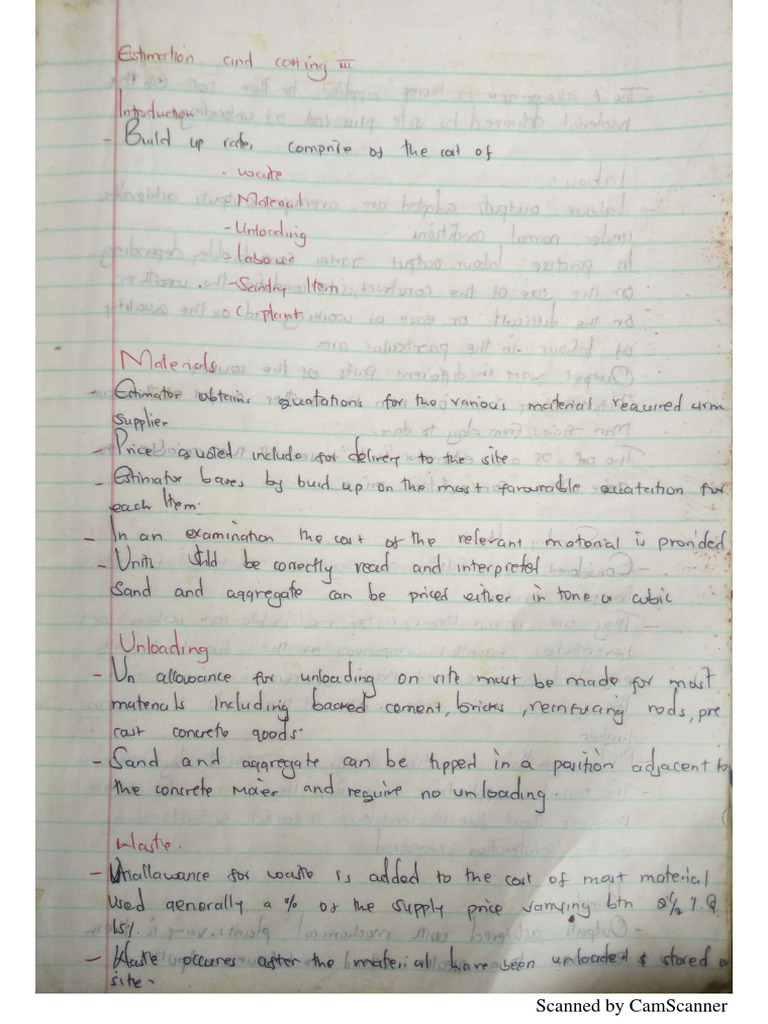 Estimation and costing III
Introduction
- Build up rates comprise of the cost of
- waste
- Material
- Unloading
- labour
- Sundry Item
- plant
Materials
- Estimator obtains quatations for the various material required from
supplier
- Price quoted include for delivery to the site
- Estimator bases by buid up on the most favourable quatation for
each Item.
- In an examination the cost of the relevant material is provided
- Units shld be correctly read and interpreted
Sand and aggregate can be priced either in tone or cubic
Unloading
- Un allowance for unloading on site must be made for most
materials Including backed cement, bricks, reinfurcing rods, pre
cast concrete goods.
- Sand and aggregate can be tipped in a position adjacent to
the concrete mixer and require no unloading.
Waste.
- Unallawance for waste is added to the cost of most material
Used generally a % of the supply price varrying btn 2½ % &
15%
- Waste occures after the material have been unloaded & stored on
site.
Scanned by CamScanner